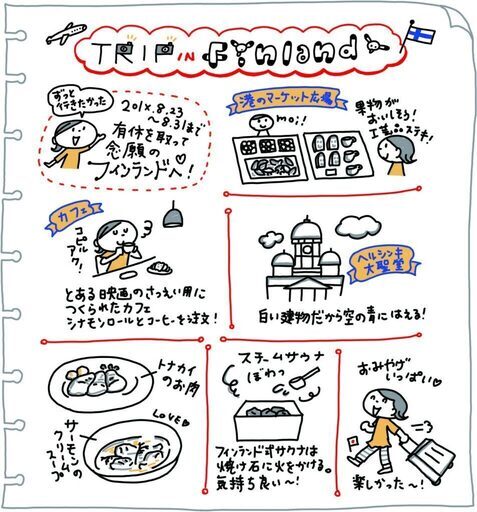 TRIP IN Finland
ずっと
行きたかった
201X.8.23
～8.31まで
有休を取って
念願の
フィンランドへ!
港のマーケット広場
moi!
果物が
おいしそう!
工芸品ステキ!
カフェ
コピルアク!
とある映画のさつえい用に
つくられたカフェ
シナモンロールとコーヒーを注文!
ヘルシンキ
大聖堂
白い建物だから空の青にはえる!
トナカイ
のお肉
LOVE
サーモンの
クリーム
スープ
スチームサウナ
ぼわっ
フィンランド式サウナは
焼け石に火をかける。
気持ち良い～!
おみやげ
いっぱい
楽しかった～!